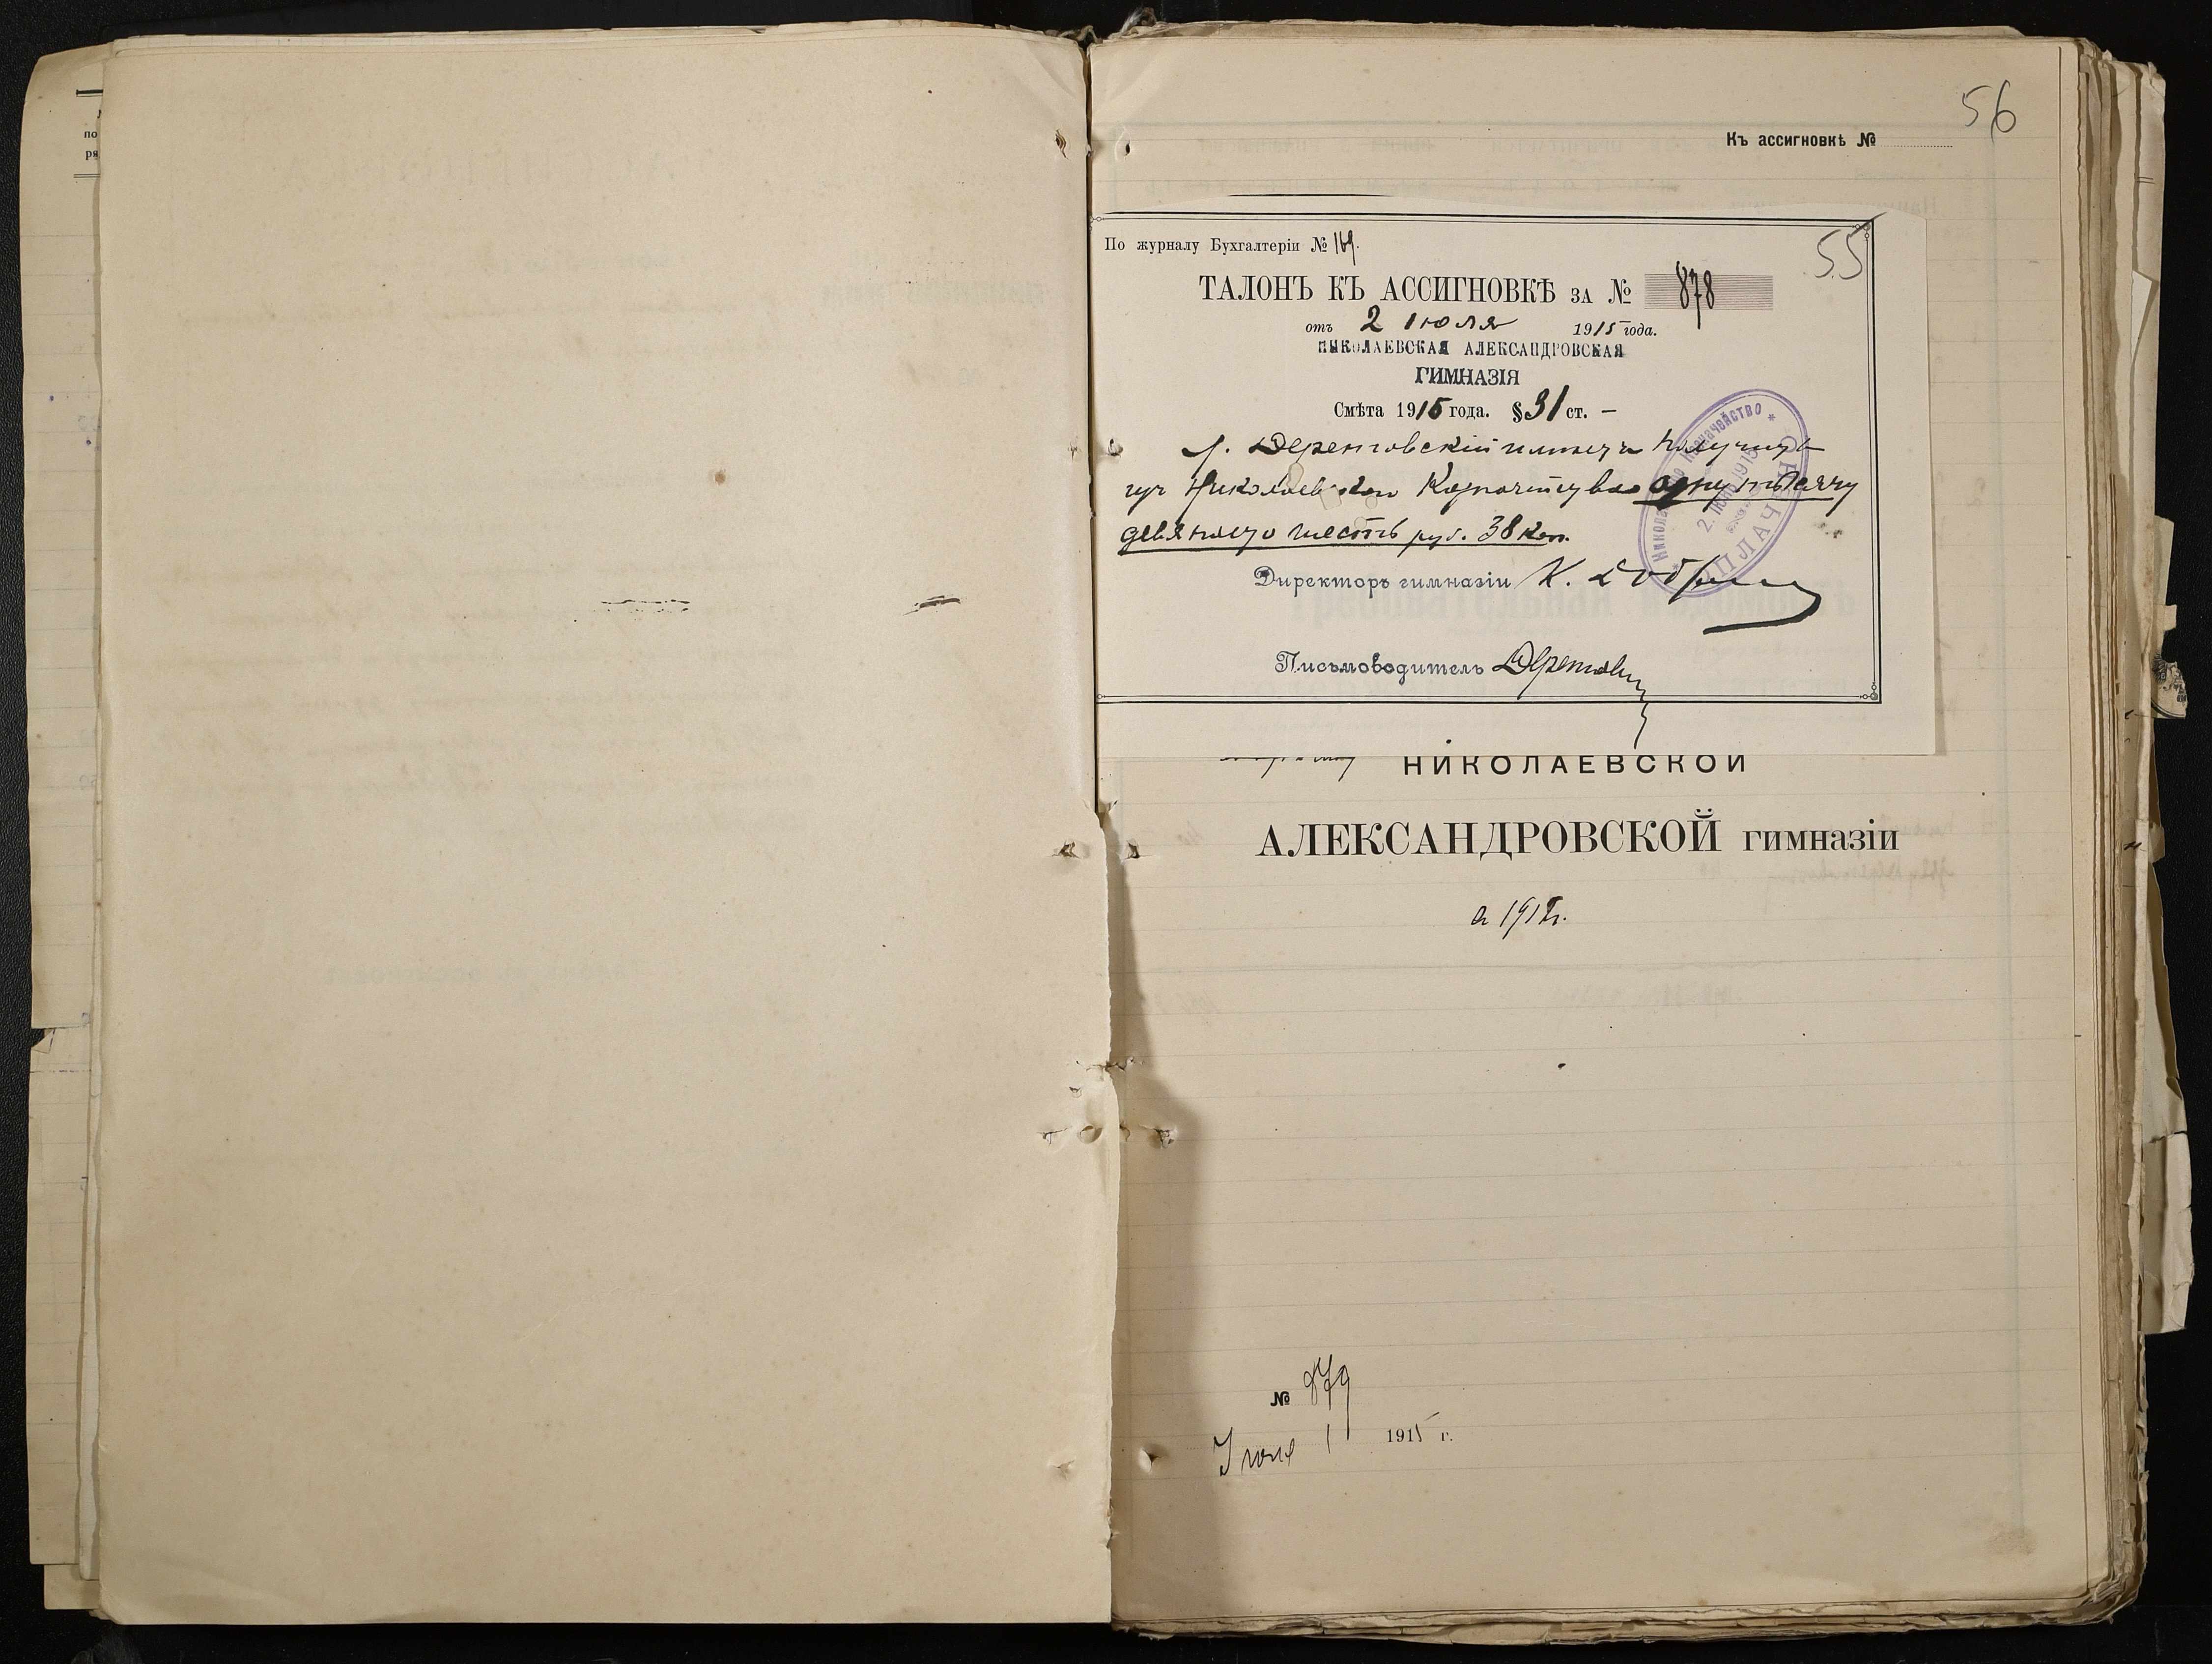 56
Къ ассигновкѣ №
По журналу Бухгалтеріи № 169.
55
ТАЛОНЪ КЪ АССИГНОВКѢ ЗА № 878
отъ 2 Июля 1915 года.
НИКОЛАЕВСКАЯ АЛЕКСАНДРОВСКАЯ
ГИМНАЗІЯ
Смѣта 1915 года. § 31 ст. –
г. имѣетъ получить
изъ Николаевскаго Казначейства одну тысячу
девятьсотъ шесть руб. 38 коп.
Директоръ гимназіи К.
Письмоводитель
Николаевское Казначейство
2. ІЮЛ 1915
ОПЛАЧЕНО
НИКОЛАЕВСКОЙ
АЛЕКСАНДРОВСКОЙ гимназіи
а 1915 г.
№ 879
Июля 1 1915 г.
по
ря